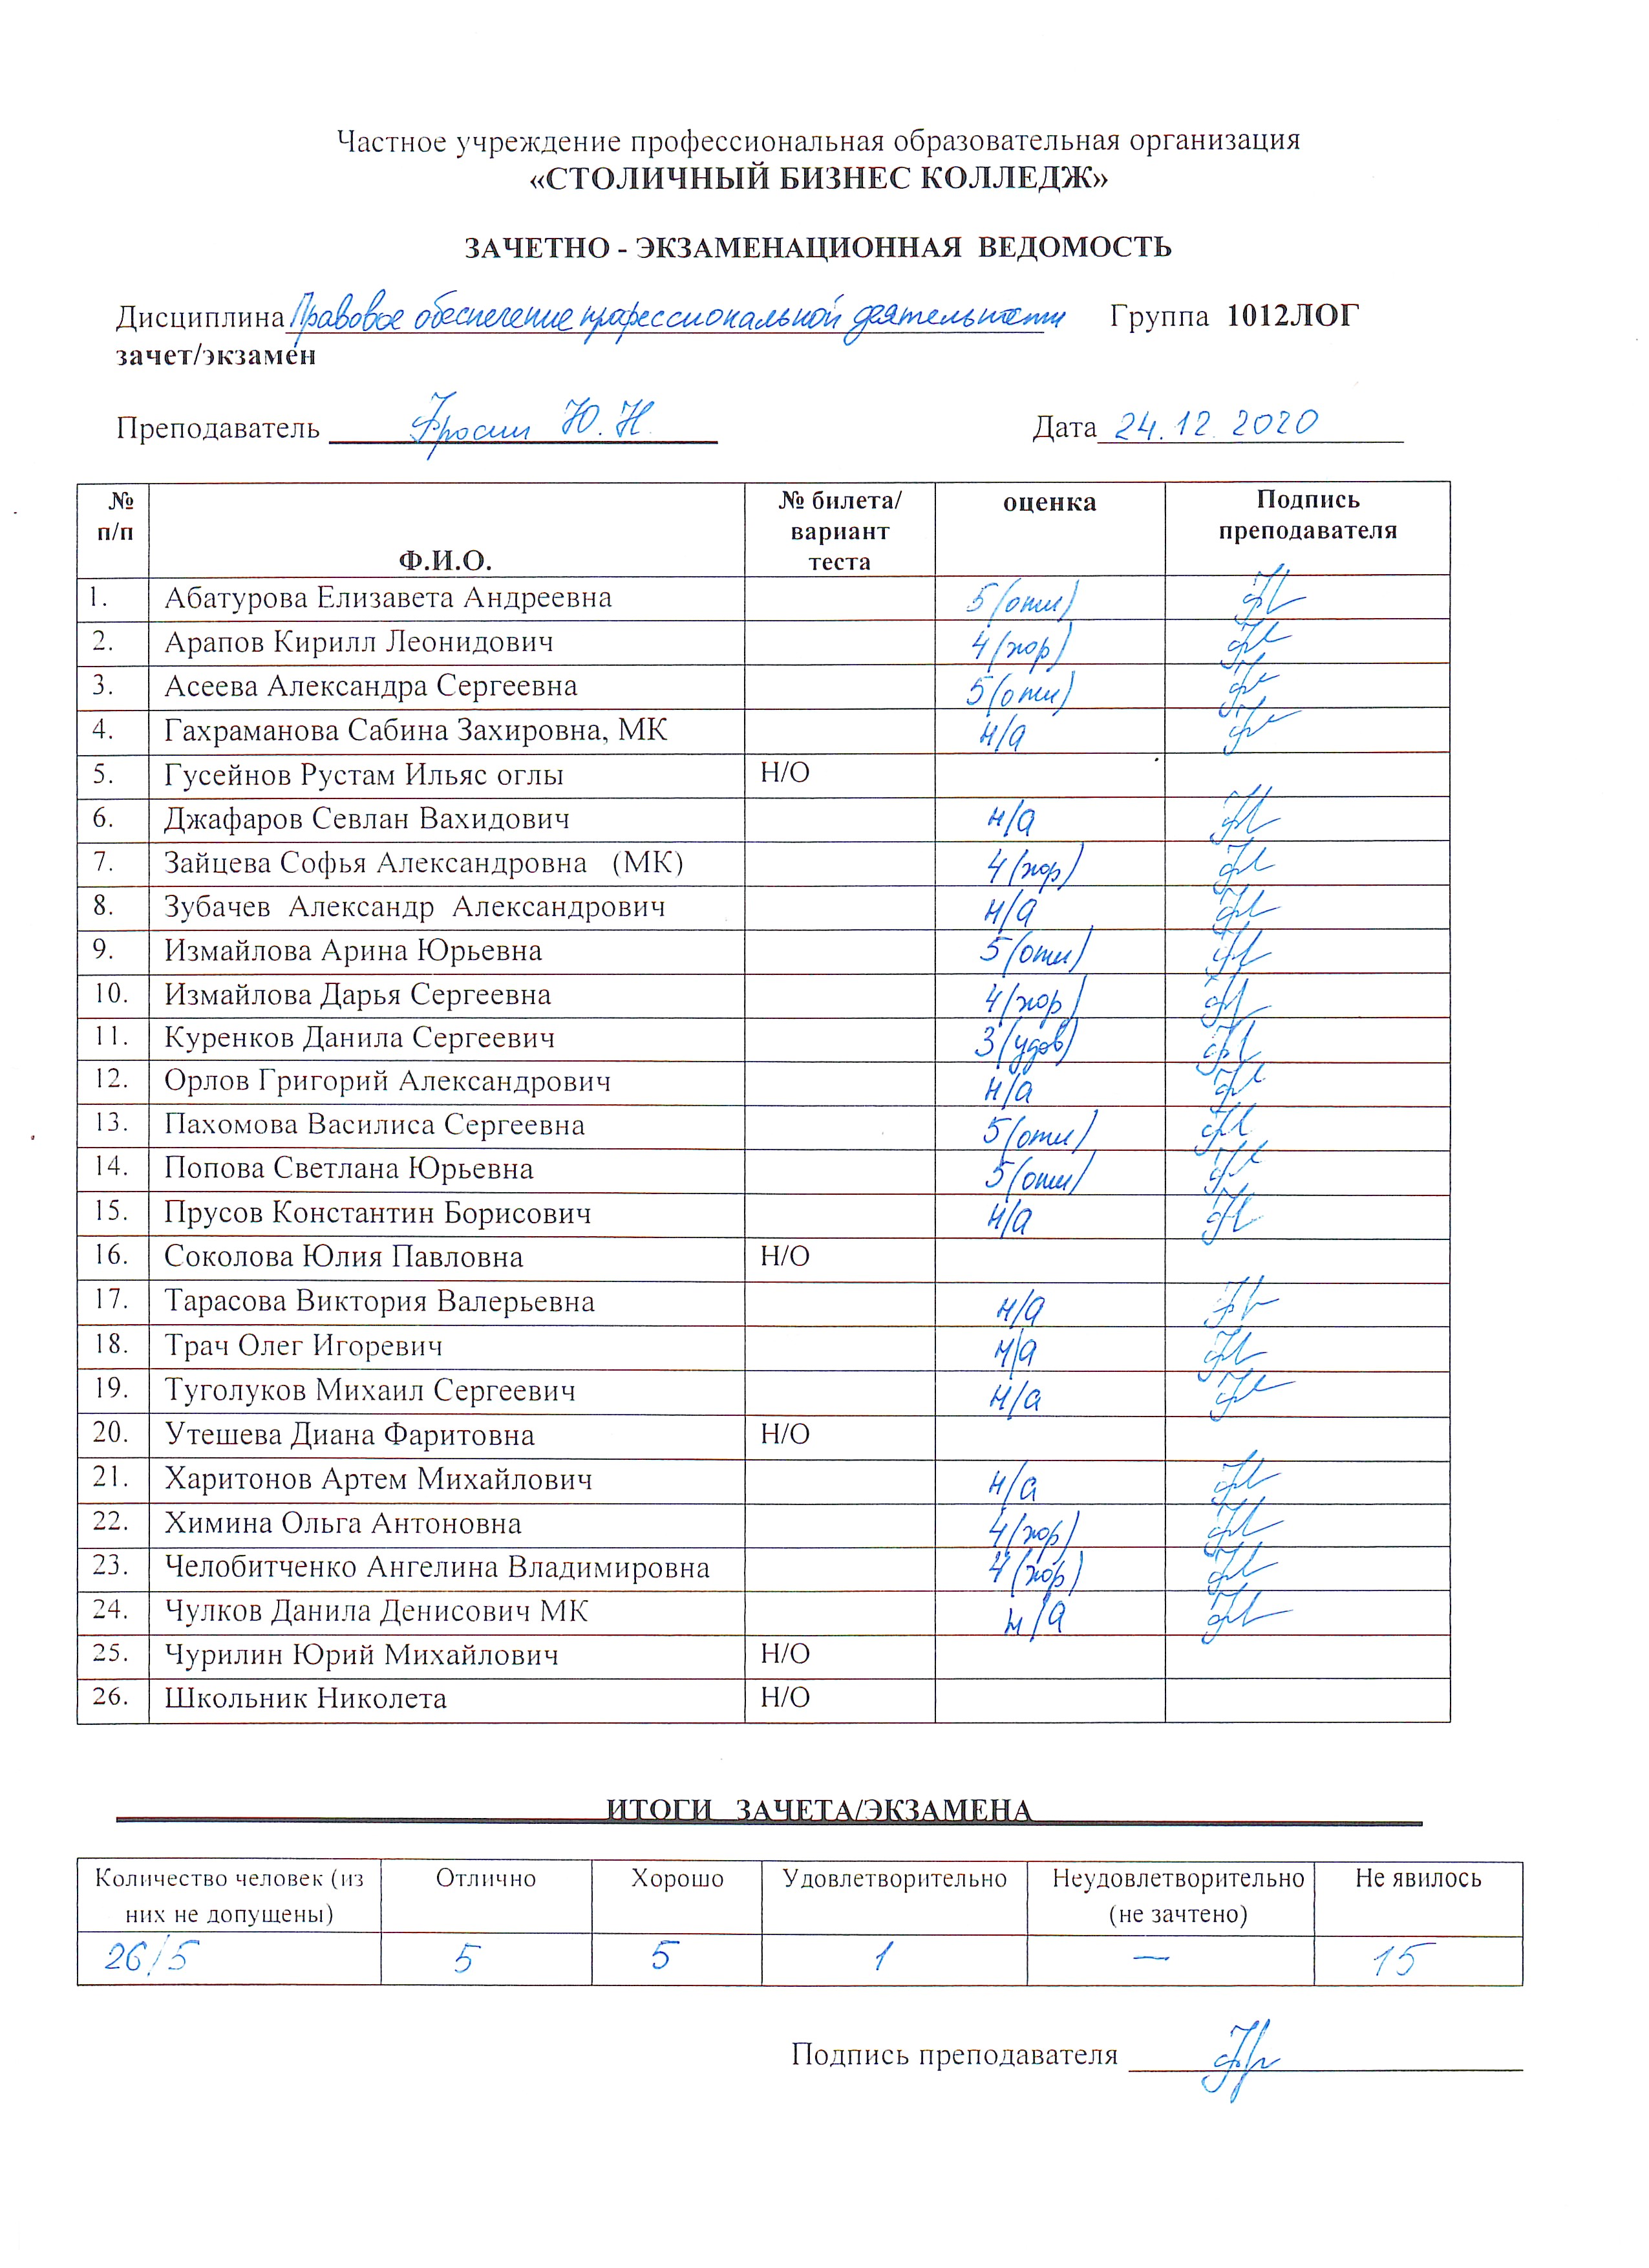 Частное учреждение профессиональная образовательная организация
«СТОЛИЧНЫЙ БИЗНЕС КОЛЛЕДЖ»
ЗАЧЕТНО - ЭКЗАМЕНАЦИОННАЯ ВЕДОМОСТЬ
Дисциплина Правовое обеспечение профессиональной деятельности Группа 1012ЛОГ
зачет/экзамен
Преподаватель Фросин Ю.Н. Дата 24.12.2020
№ п/п Ф.И.О. № билета/ вариант теста оценка Подпись преподавателя
1. Абатурова Елизавета Андреевна 5(отл)
2. Арапов Кирилл Леонидович 4(хор)
3. Асеева Александра Сергеевна 5(отл)
4. Гахраманова Сабина Захировна, МК н/а
5. Гусейнов Рустам Ильяс оглы Н/О
6. Джафаров Севлан Вахидович н/а
7. Зайцева Софья Александровна (МК) 4(хор)
8. Зубачев Александр Александрович н/а
9. Измайлова Арина Юрьевна 5(отл)
10. Измайлова Дарья Сергеевна 4(хор)
11. Куренков Данила Сергеевич 3(удов)
12. Орлов Григорий Александрович н/а
13. Пахомова Василиса Сергеевна 5(отл)
14. Попова Светлана Юрьевна 5(отл)
15. Прусов Константин Борисович н/а
16. Соколова Юлия Павловна Н/О
17. Тарасова Виктория Валерьевна н/а
18. Трач Олег Игоревич н/а
19. Туголуков Михаил Сергеевич н/а
20. Утешева Диана Фаритовна Н/О
21. Харитонов Артем Михайлович н/а
22. Химина Ольга Антоновна 4(хор)
23. Челобитченко Ангелина Владимировна 4(хор)
24. Чулков Данила Денисович МК н/а
25. Чурилин Юрий Михайлович Н/О
26. Школьник Николета Н/О
ИТОГИ ЗАЧЕТА/ЭКЗАМЕНА
Количество человек (из них не допущены) Отлично Хорошо Удовлетворительно Неудовлетворительно (не зачтено) Не явилось
26/5 5 5 1 — 15
Подпись преподавателя